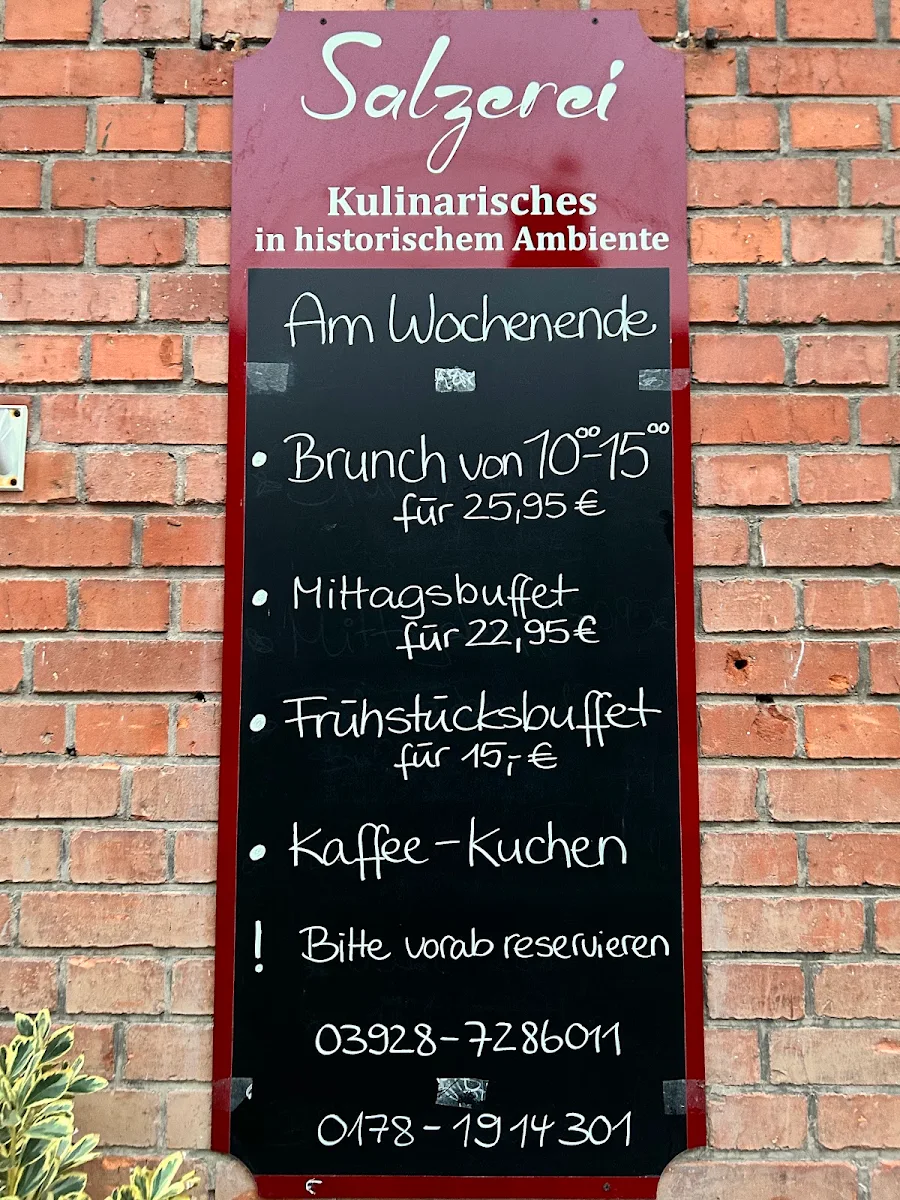 Salzerei
Kulinarisches
in historischem Ambiente
Am Wochenende
• Brunch von 10⁰⁰-15⁰⁰
für 25,95 €
• Mittagsbuffet
für 22,95 €
• Frühstücksbuffet
für 15,- €
• Kaffee-Kuchen
! Bitte vorab reservieren
03928-7286011
0178-1914301